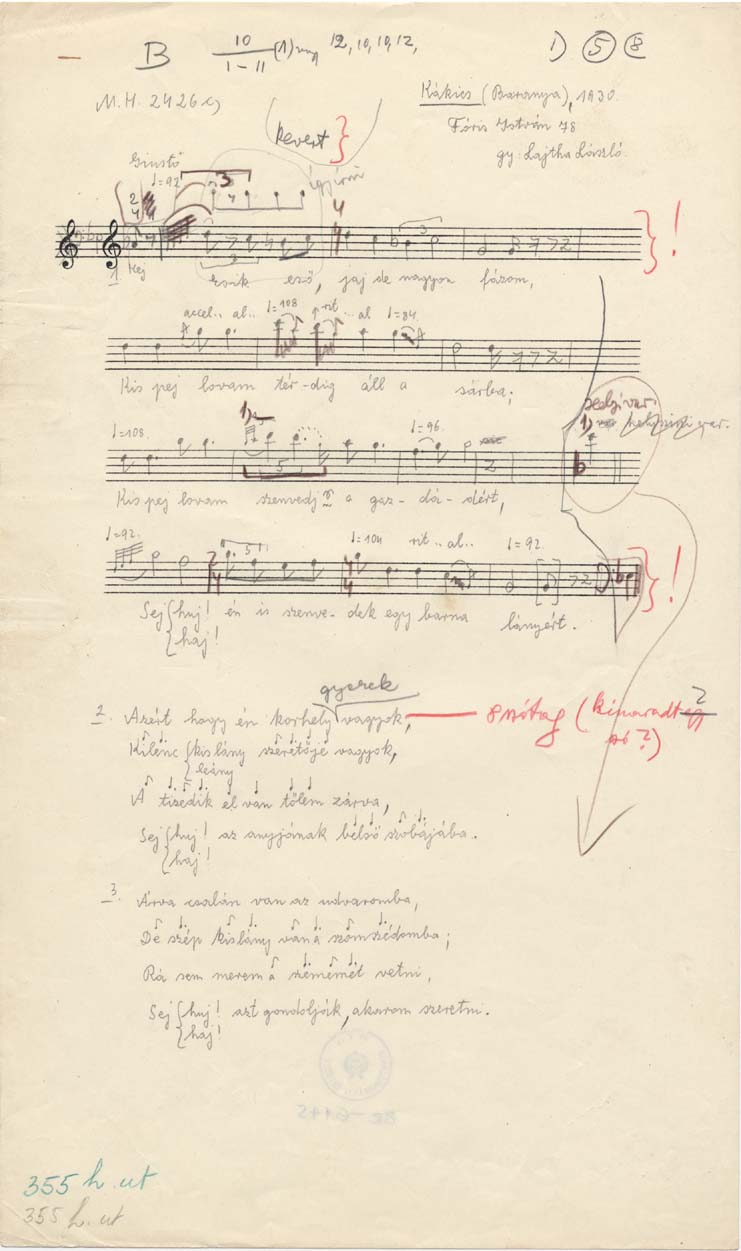 B 10 / I–II (1) 12, 10, 10, 12, 1) 5 8
M.H. 2426 c) Kákics (Baranya), 1930.
Kevert } Fóris István 78
gy: Lajtha László.
Giusto
♩=92 3
2/4 4/4 3 } !
1. Hej esik eső, jaj de nagyon fázom,
accel.. al.. ♩=108 rit ... al ♩=84
Kis pej lovam tér-dig áll a sárba;
♩=108 1) ♩=96 1)
5
Kis pej lovam szenvedj a gaz-dá-dért,
♩=92. 5 ♩=104 rit .. al.. ♩=92
2/4 4/4 } !
Sej { huj! én is szenve-dek egy barna lányért.
{ haj!
gyerek
2. Azért hogy én korhely vagyok, — 8 szótag (kimaradt egy szó?) ?
Kilenc { kislány szeretője vagyok,
{ leány
A tizedik el van tőlem zárva,
Sej { huj! az anyjának belső szobájába.
{ haj!
3. Árva csalán van az udvaromba,
De szép kislány van a szomszédomba;
Rá sem merem a szememet vetni,
Sej { huj! azt gondolják, akarom szeretni.
{ haj!
355 h. ut
355 h. ut